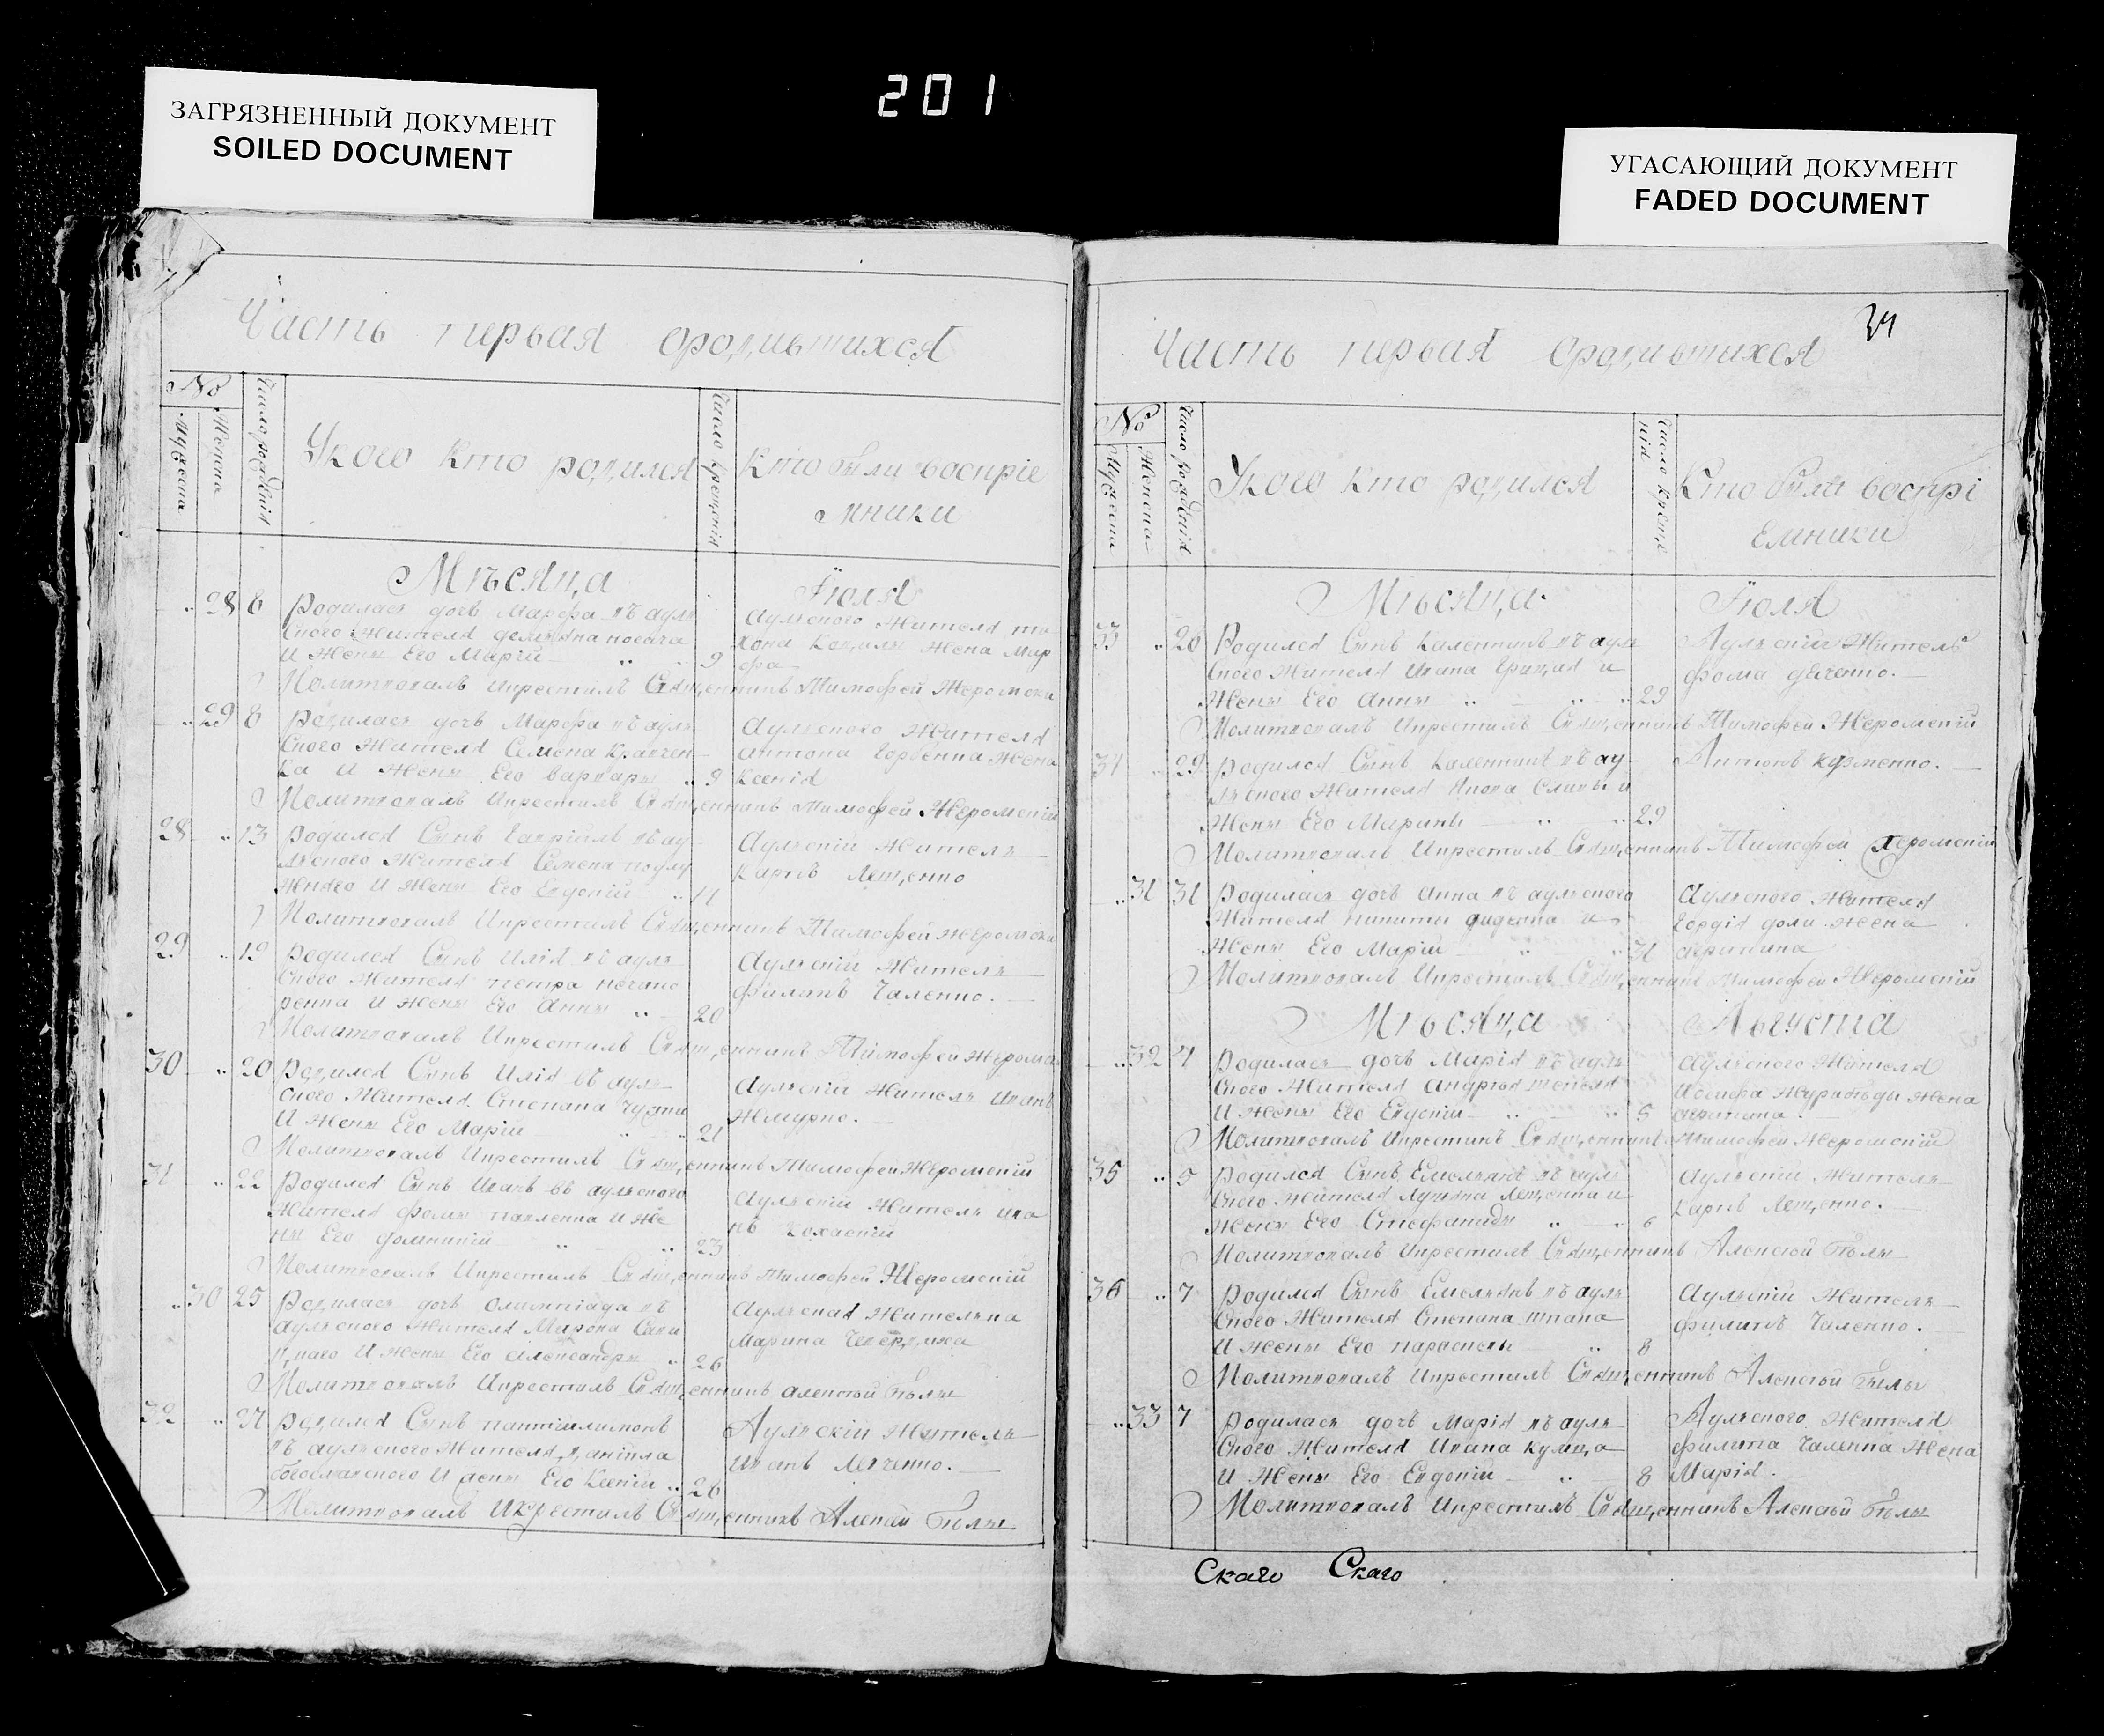 ЗАГРЯЗНЕННЫЙ ДОКУМЕНТ
SOILED DOCUMENT
201
УГАСАЮЩИЙ ДОКУМЕНТ
FADED DOCUMENT
Часть первая ородившихся
№
Мужеска
Женска
Число рожденія
Укого кто родился
Число крещенія
Кто были воспріе
мники
Мѣсяца
Іюля
28 6 Родилась дочь Марфа въ ауль
ского Жителя носача
И Жены Его Маріи 9
Аульского Жителя ти
хона Жена Мар
фа
Молитвовалъ Икрестилъ Священникъ Тимофей
29 8 Родилась дочь Марфа въ ауль
ского Жителя Семена Кравчен
ка И Жены Его варвары 9
Аульского Жителя
антона Горбенка Жена
Ксенія
Молитвовалъ Икрестилъ Священникъ Тимофей Жеромскій
28 13 Родился Сынъ Гавріилъ въ ау
льского Жителя Семена
И Жены Его Евдокіи 14
Аульскій Житель
Карпъ Лещенко
Молитвовалъ Икрестилъ Священникъ Тимофей
29 19 Родился Сынъ Илія въ ауль
ского Жителя петра нечипо
ренка И Жены Его Анны 20
Аульскій Житель
Филипъ Чаленко.
Молитвовалъ Икрестилъ Священникъ Тимофей
30 20 Родился Сынъ Илія въ ауль
ского Жителя Степана
И Жены Его Маріи 21
Аульскій Житель Иванъ
Жмурко.
Молитвовалъ Икрестилъ Священникъ Тимофей Жеромскій
31 22 Родился Сынъ Иванъ въ аульского
Жителя Фомы павленка И Же
ны Его 23
Аульскій Житель Ива
нъ
Молитвовалъ Икрестилъ Священникъ Тимофей Жеромскій
30 25 Родилась дочь Олимпіада въ
аульского Жителя
И Жены Его александры 26
Аульская Жителька
Марина
Молитвовалъ Икрестилъ Священникъ алексѣй Бѣлы
32 27 Родился Сынъ пантилимонъ
въ аульского Жителя
И Жены Его Ксеніи 28
Аульскій Житель
Иванъ Левченко.
Молитвовалъ Икрестилъ Священникъ Алексѣй Бѣлы
Часть первая ородившихся
№
Мужеска
Женска
Число рожденія
Укого кто родился
Число креще
нія
Кто были воспрі
емники
Мѣсяца
Іюля
33 26 Родился Сынъ Каленникъ въ ауль
ского Жителя Ивана Грицая и
Жены Его Анны 29
Аульскій Житель
Фома дяченко.
Молитвовалъ Икрестилъ Священникъ Тимофей Жеромскій
34 29 Родился Сынъ Каленникъ въ ау
льского Жителя Якова Сливы и
Жены Его Марины 29
Антонъ Кузменко.
Молитвовалъ Икрестилъ Священникъ Тимофей Жеромскій
31 31 Родилась дочь Анна въ аульского
Жителя никиты диденка и
Жены Его Маріи 31
Аульского Жителя
Гордія доли Жена
агрипина
Молитвовалъ Икрестилъ Священникъ Тимофей Жеромскій
Мѣсяца
Августа
32 4 Родилась дочь Марія въ ауль
ского Жителя Андрѣя шепеля
И Жены Его Евдокіи 5
Аульского Жителя
Иосифа Журибѣды Жена
агрипина.
Молитвовалъ Икрестилъ Священникъ Тимофей Жеромскій
35 5 Родился Сынъ Емельянъ въ ауль
ского Жителя Лукьяна Лещенка и
Жены Его Стефаниды 6
Аульскій Житель
Карпъ Лещенко.
Молитвовалъ Икрестилъ Священникъ Алексѣй Бѣлы
36 7 Родился Сынъ Емельянъ въ ауль
ского Жителя Степана шпака
И Жены Его параскевы 8
Аульскій Житель
Филипъ Чаленко.
Молитвовалъ Икрестилъ Священникъ Алексѣй Бѣлы
33 7 Родилась дочь Марія въ ауль
ского Жителя Ивана Кулица
И Жены Его Евдокіи 8
Аульского Жителя
Филипа Чаленка Жена
Марія.
Молитвовалъ Икрестилъ Священникъ Алексѣй Бѣлы
Скаго Скаго